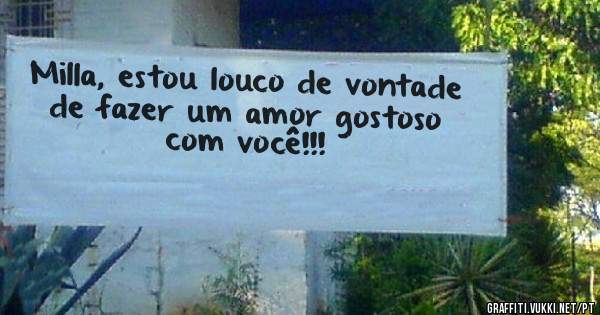 Milla, estou louco de vontade
de fazer um amor gostoso
com você!!!
GRAFFITI.VUKKI.NET/PT